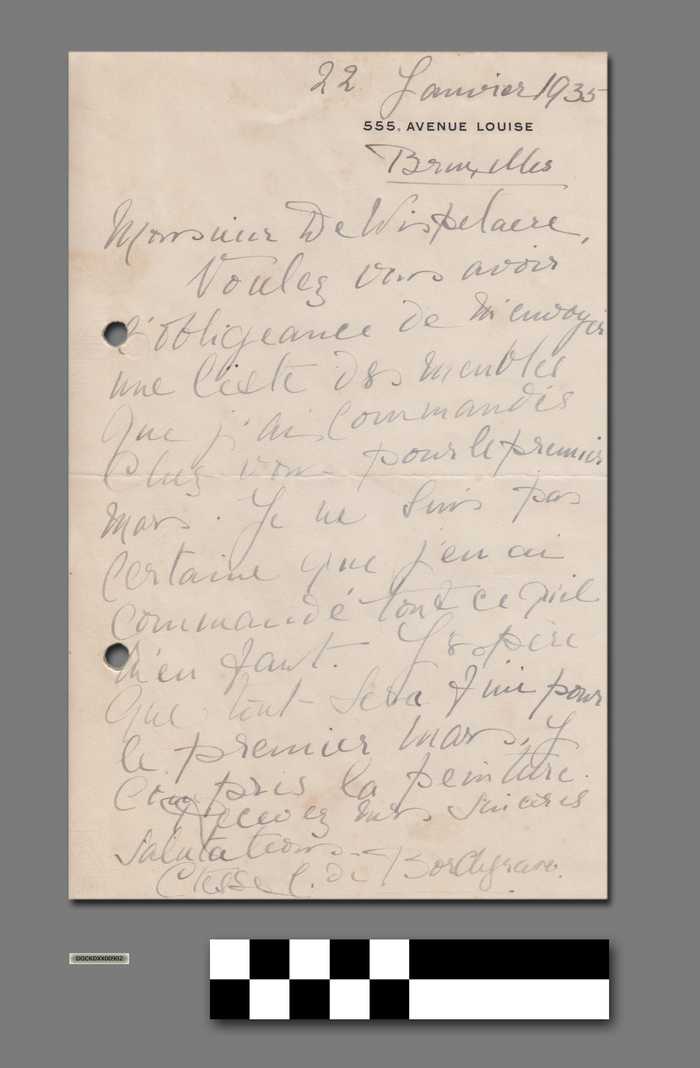 22 Janvier 1935
555. AVENUE LOUISE
Bruxelles
Monsieur De Wispelaere,
Voulez vous avoir
l'obligeance de m'envoyer
une liste des meubles
que j'ai commandés
chez vous pour le premier
mars. Je ne suis pas
certaine que j'en ai
commandé tout ce qu'il
m'en faut. J'espère
que tout sera fini pour
le premier mars, y
compris la peinture.
Recevez mes sincères
salutations.
Ctesse C. de Borchgrave.
DOCKDXX00902